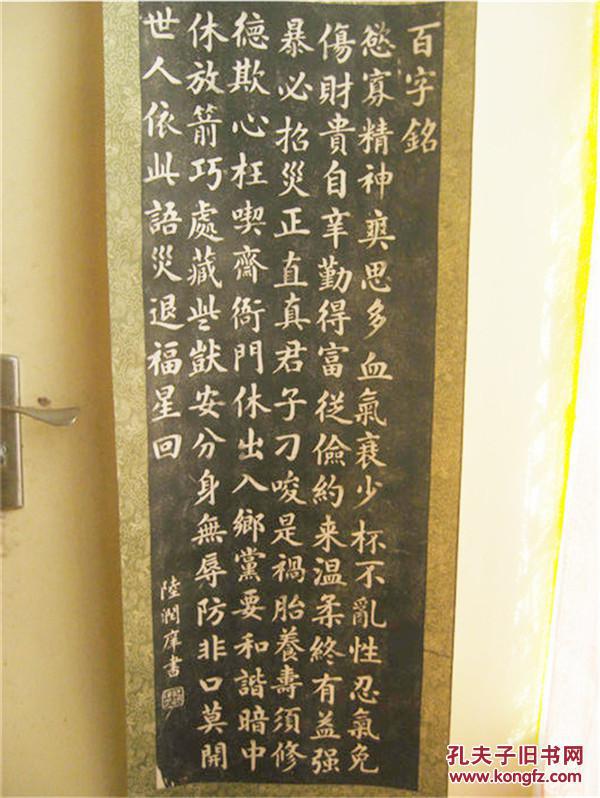 百字銘
慾寡精神爽思多血氣衰少杯不亂性忍氣免
傷財貴自辛勤得富從儉約来温柔終有益强
暴必招災正直真君子刁唆是禍胎養壽須修
德欺心枉喫齋衙門休出入鄉黨要和諧暗中
休放箭巧處藏些獃安分身無辱防非口莫開
世人依此語災退福星回
陸潤庠書
孔夫子旧书网
www.kongfz.com